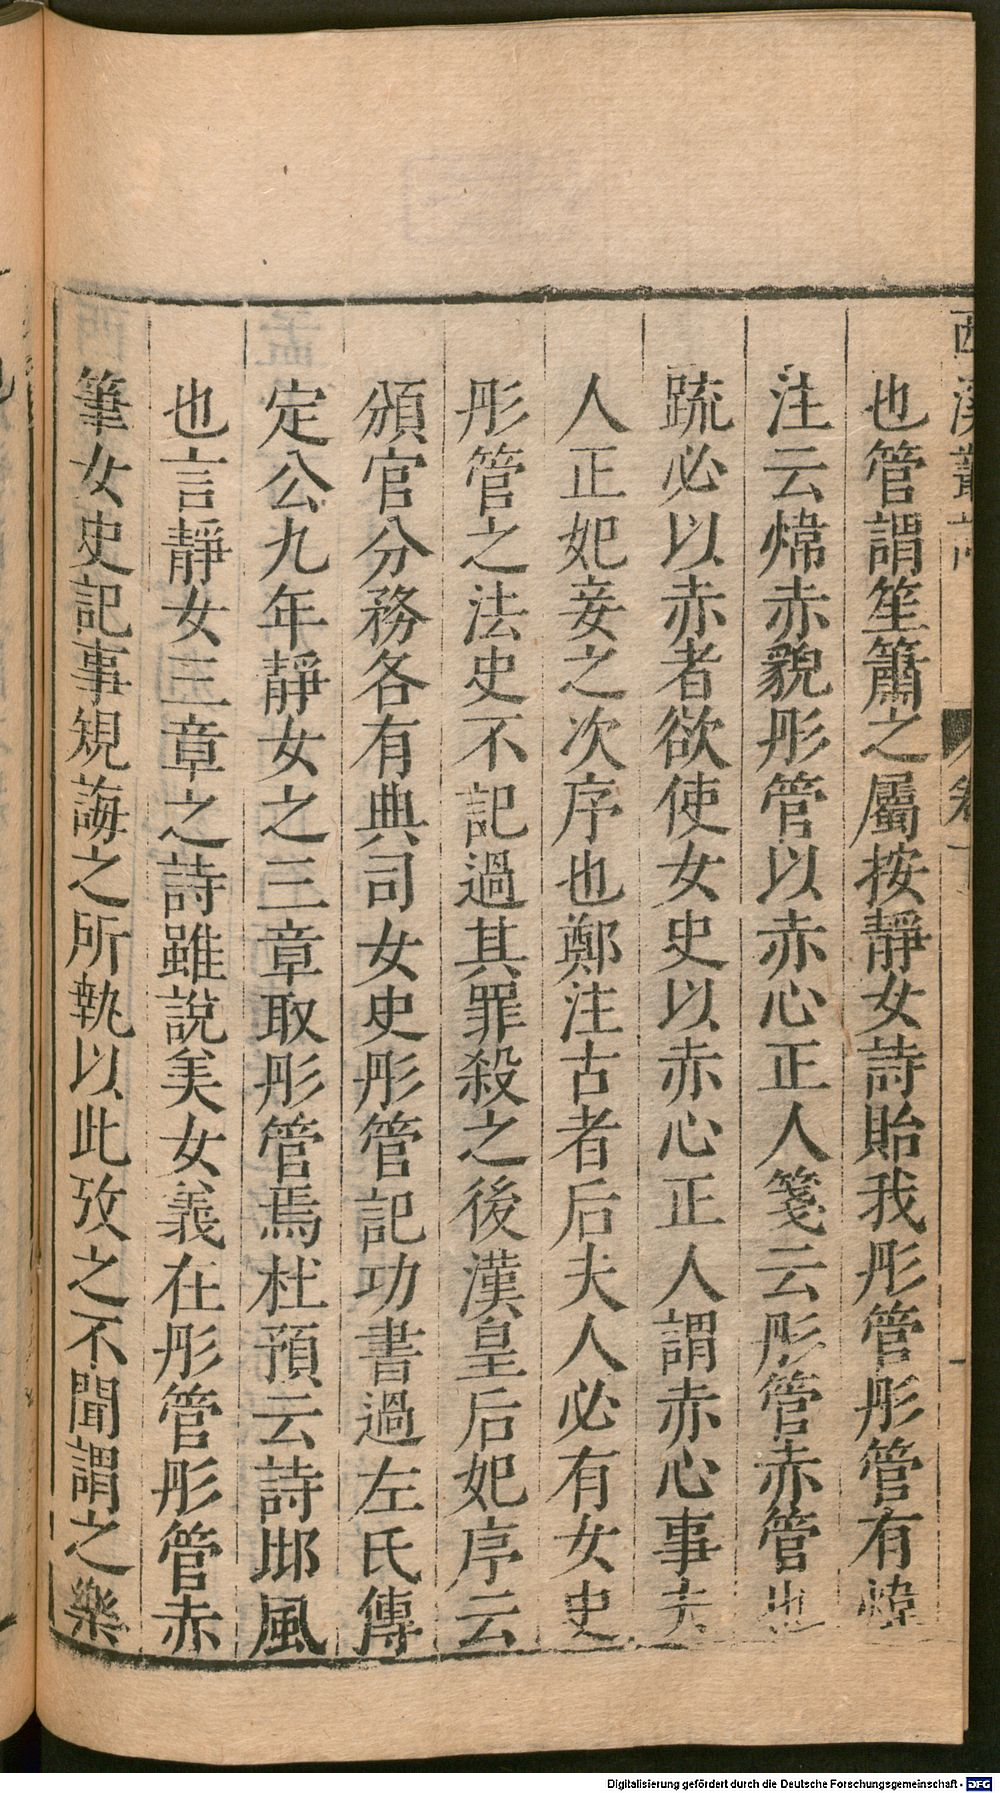 西溪叢語 卷一
也管謂笙簫之屬按靜女詩貽我彤管彤管有煒
注云煒赤貌彤管以赤心正人箋云彤管赤管也
疏必以赤者欲使女史以赤心正人謂赤心事夫
人正妃妾之次序也鄭注古者后夫人必有女史
彤管之法史不記過其罪殺之後漢皇后妃序云
頒官分務各有典司女史彤管記功書過左氏傳
定公九年靜女之三章取彤管焉杜預云詩邶風
也言靜女三章之詩雖說美女義在彤管彤管赤
筆女史記事規誨之所執以此攷之不聞謂之樂
Digitalisierung gefördert durch die Deutsche Forschungsgemeinschaft - DFG